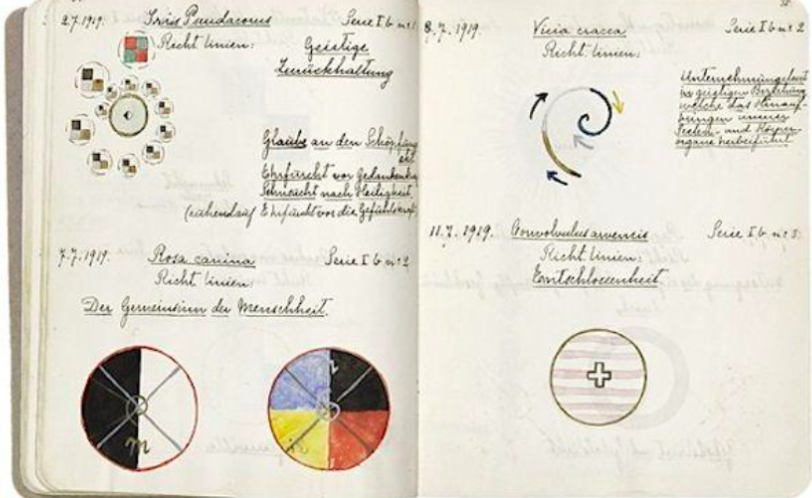 2.7.1919. Iris Pseudacorus Serie I b nr 1
Richt linien: Geistige
Zurückhaltung
Glaube an den Schöpfungs
akt.
Ehrfürcht vor Gedankenkra
Sehnsucht nach Heiligkeit.
Ehrfürcht vor die Gefühlskraft
7.7.1919. Rosa canina Serie I b nr 2
Richt linien:
Der Gemeinsinn der Menschheit.
8.7.1919. Vicia cracca Serie I b nr 2
Richt linien:
Unternehmungslust
in geistigen Beziehung
welche das Hinauf
bringen unserer
Seelen- und Körper
organe herbeiführt
11.7.1919. Convolvulus arvensis Serie I b nr 3
Richt linien:
Entschlossenheit